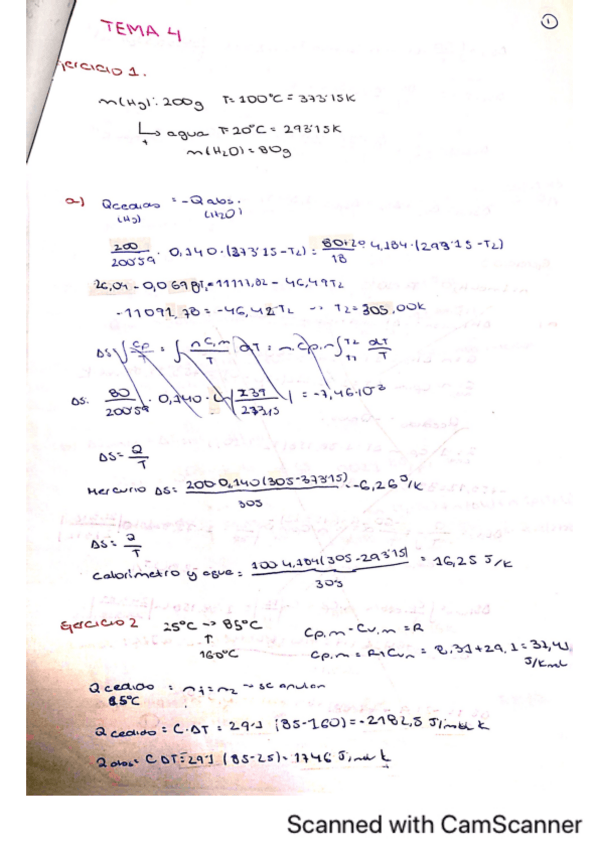 1
TEMA 4
Ejercicio 1.
m(Hg): 200g T= 100°C = 373'15K
↳ agua T=20°C = 293'15K
+
m(H2O) = 80g
a) Qcedidas = -Q abs.
(Hg) (H2O)
200/200'59 · 0,140 · (373'15 - T2) = 80+20/18 4,184 · (293'15 - T2)
26,04 - 0,0698T2 = 11111,82 - 46,49T2
-11091,78 = -46,42T2 → T2 = 305,00K
ΔS ∫ Cp/T = ∫ nC,m/T dT = n·Cp,m ∫T1 T2 dT/T
ΔS: 80/200'59 · 0,140 · L | 239/273,15 | = -7,46·10⁻³
ΔS = Q/T
Mercurio ΔS: 200·0,140(305-373'15)/305 = -6,26 J/K
ΔS = Q/T
Calorimetro y agua: 100 4,184(305-293'15)/305 = 16,25 J/K
Ejercicio 2 25°C → 85°C Cp,m - Cv,m = R
↑
160°C Cp,m = R+Cv,m = 8,31+29,1 = 37,41
J/Kmol
Q cedido = n1 = n2 → se anulan
85°C
Q cedido = C·DT = 29'1 (85-160) = -2182,5 J/mol k
Q abs = C DT = 29'1 (85-25) = 1746 J/mol k
Scanned with CamScanner